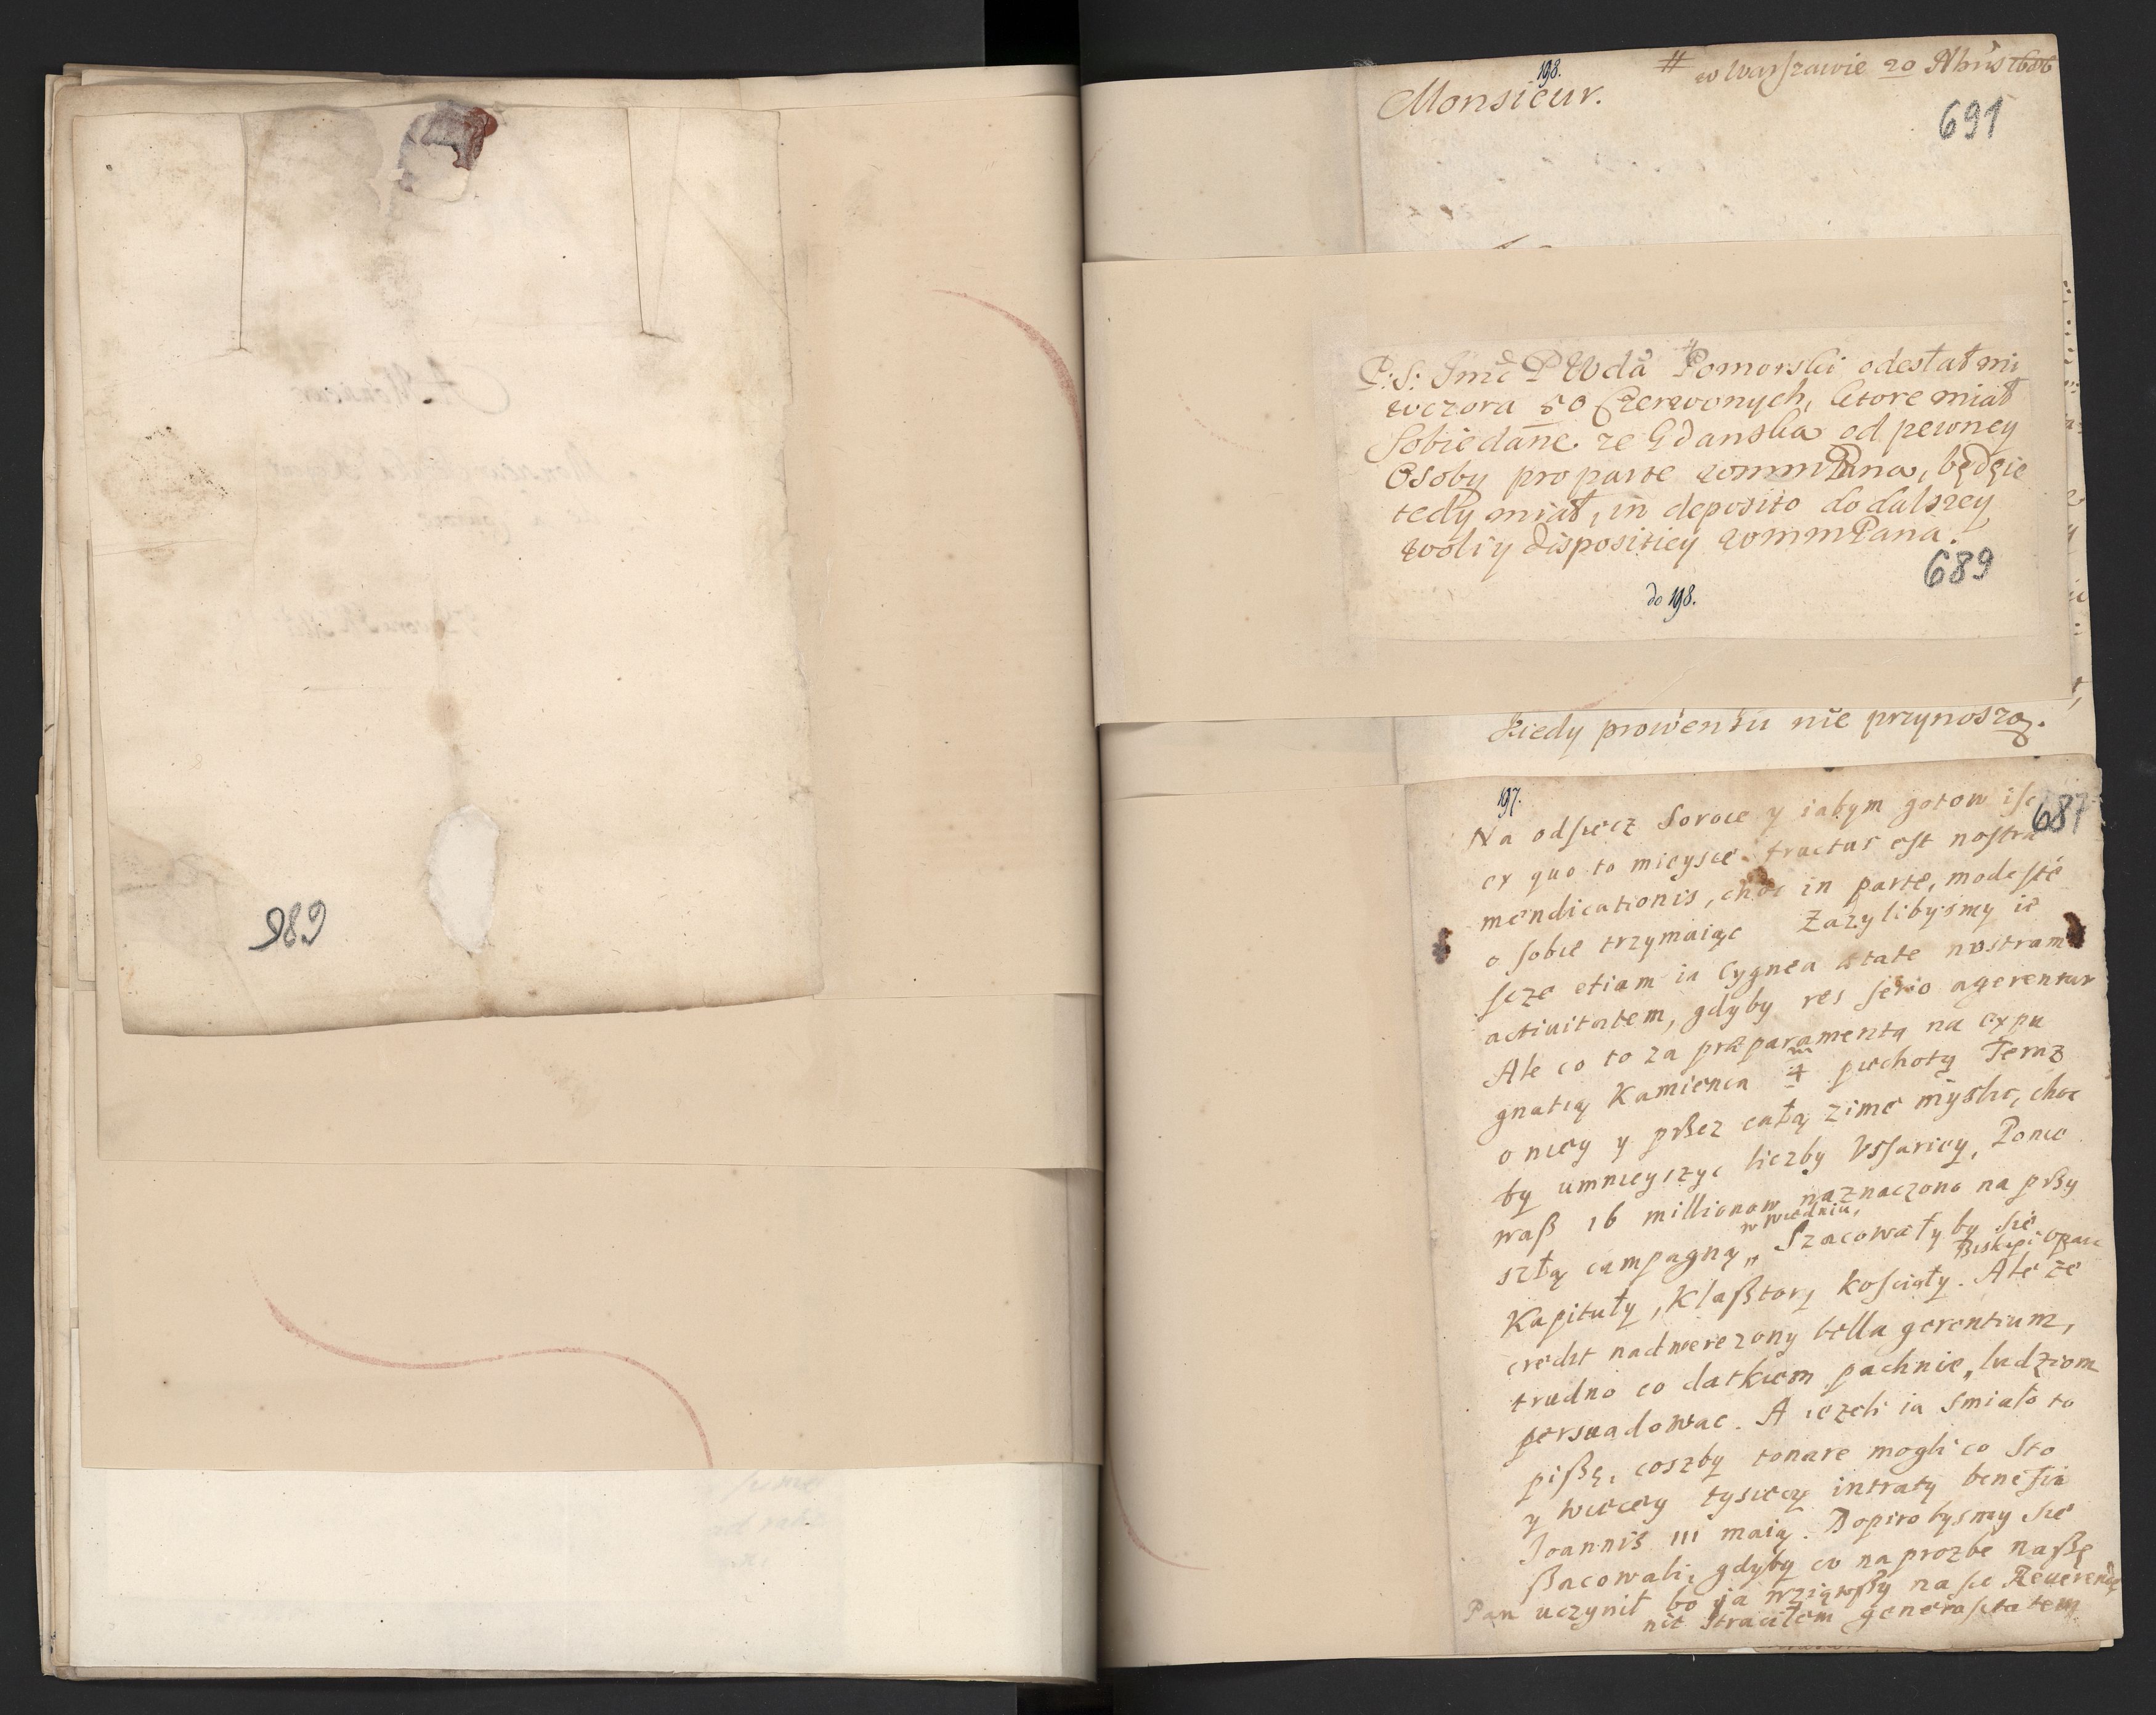 686
198.
# w Warszawie 20
Monsieur.
691
P: S: Jmć P Wda Pomorski odesłał mi
wczora 50 Czerwonych, ktore miał
sobie dane ze Gdanska od pewney
Osoby pro parte wmmPana, będzie
tedy miał, in deposito do dalszey
woli y dispositiey wmmPana.
689
do 198.
kiedy prowentu nie przynoszą.
197.
687
Na odsiecz Soroce y iabym gotow isc
ex quo to mieysce fructus est nostra
mendicationis, choc in parte, modeste
o sobie trzymaiąc Zazylibysmy ie
scze etiam in Cygnea ætate nostram
actiuitatem, gdyby res serio agerentur
Ale co to za præparamenta na expu
gnatią Kamienca 4 m piechoty Teraz
o niey y przez całą zime myslic, choc
by umnieyszyc liczby Vssariey, Ponie
waß 16 millionow naznaczono na przy
szłą campagną w Wiedniu, Szacowały by się
Biskupi opaci
Kapituły, Klaßtory koscioły. Ale że
credit nadwerezony bella gerentium,
trudno co datkiem pachnie, ludziom
persuadowac. A iezeli ia smiało to
pißę, coszby tonare mogli co sto
y wiecey tysiecy intraty benefi
Joannis III maią. Dopiro bysmy się
ßacowali, gdyby co na prozbe naßę
Pan uczynił bo ja wziąwßy na sie Reuerendę
nie straciłem generositatem